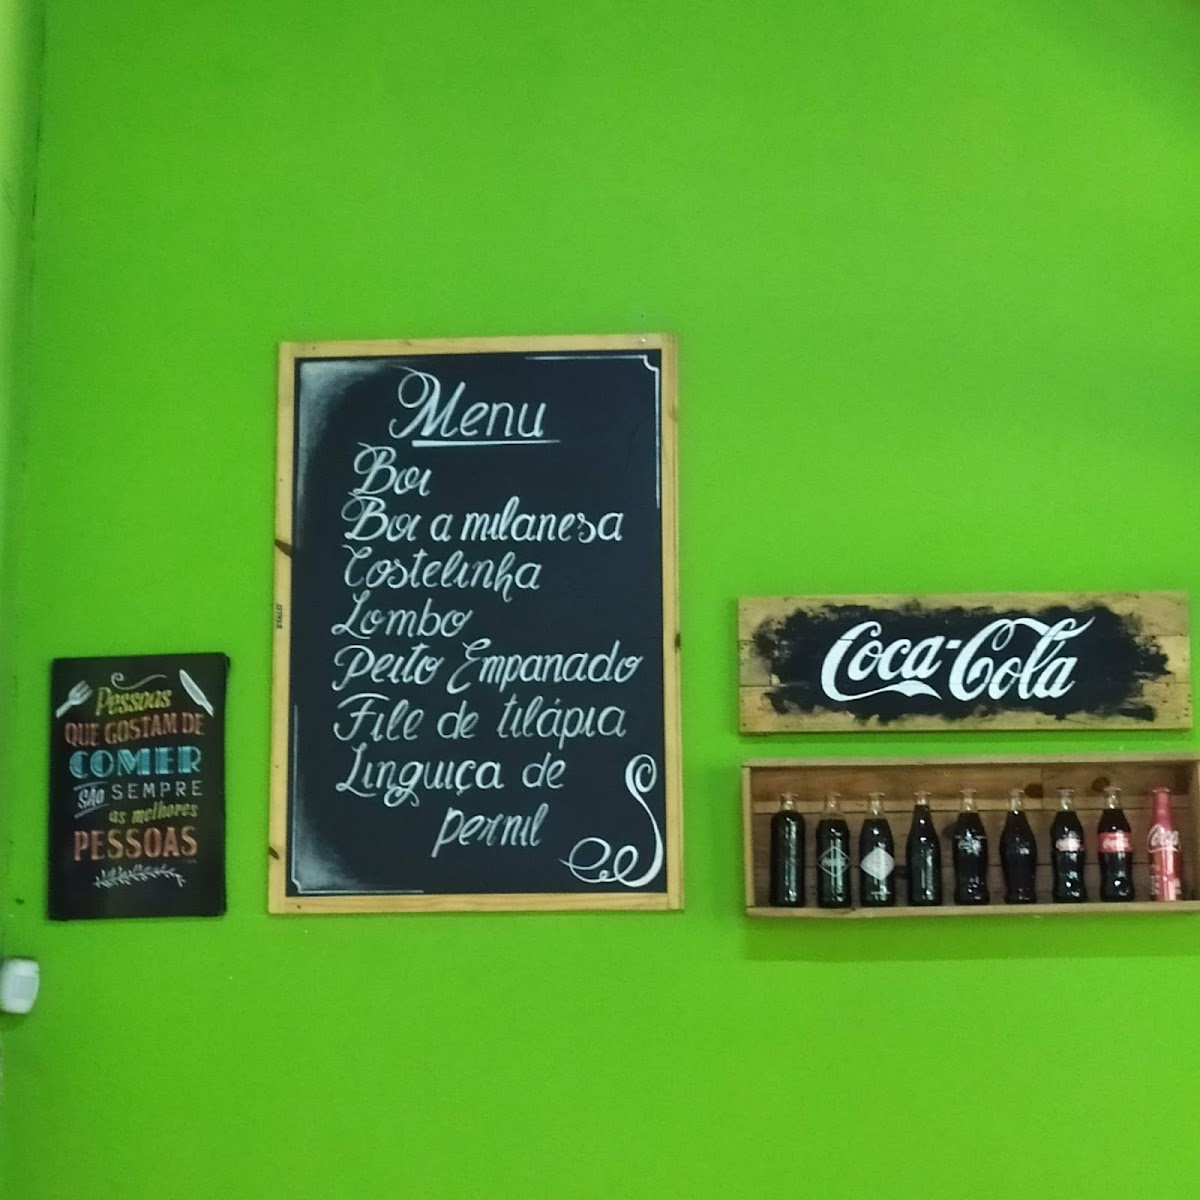 Menu
Boi
Boi a milanesa
Costelinha
Lombo
Peito Empanado
File de tilápia
Linguiça de
pernil
Pessoas
QUE GOSTAM DE
COMER
SÃO SEMPRE
as melhores
PESSOAS
Coca-Cola